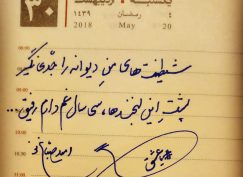 ۳۰
یکشنبه اردیبهشت
۴ رمضان ۱۴۳۹
2018 May 20
شیطنت‌های منِ دیوانه را جدّی نگیر
پشتِ این لبخندها، سی سال غم دارم رفیق...
امید صباغ نو